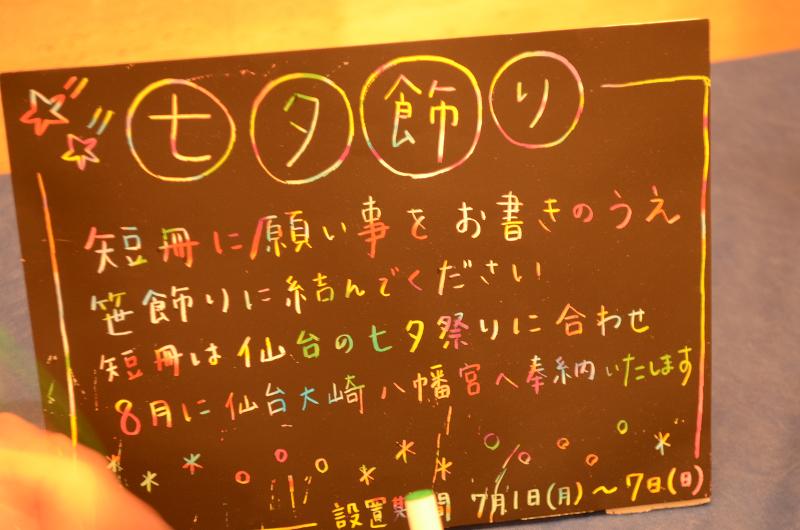 七夕飾り
短冊に願い事をお書きのうえ
笹飾りに結んでください
短冊は仙台の七夕祭りに合わせ
8月に仙台大崎八幡宮へ奉納いたします
設置期間 7月1日(月)～7日(日)